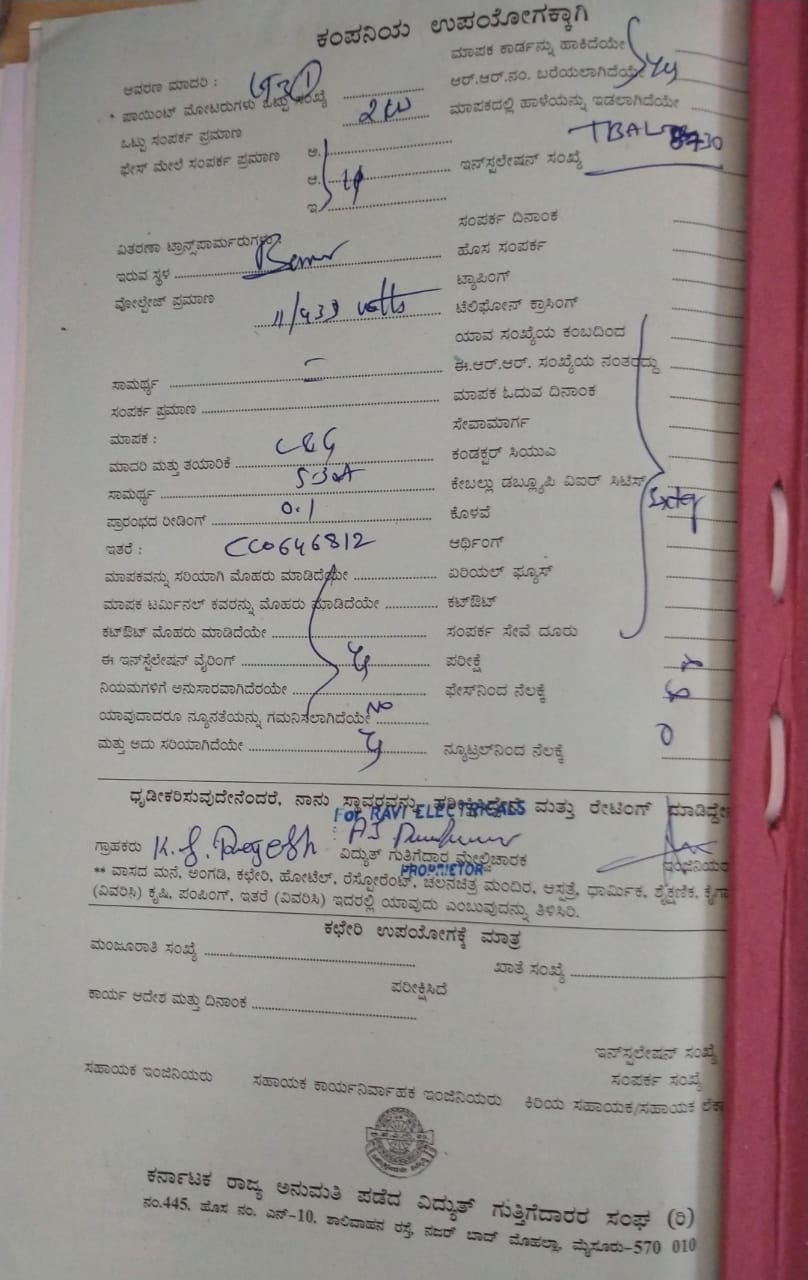 ಕಂಪನಿಯ ಉಪಯೋಗಕ್ಕಾಗಿ
ಆವರಣ ಮಾದರಿ :
* ಪಾಯಿಂಟ್ ಮೋಟರುಗಳು ಒಟ್ಟು ಸಂಖ್ಯೆ
ಒಟ್ಟು ಸಂಪರ್ಕ ಪ್ರಮಾಣ
ಫೇಸ್ ಮೇಲೆ ಸಂಪರ್ಕ ಪ್ರಮಾಣ ಅ.
ಆ.
ಇ
ವಿತರಣಾ ಟ್ರಾನ್ಸ್‌ಪಾರ್ಮರುಗಳು
ಇರುವ ಸ್ಥಳ
ವೋಲ್ಟೇಜ್ ಪ್ರಮಾಣ volts
ಸಾಮರ್ಥ್ಯ
ಸಂಪರ್ಕ ಪ್ರಮಾಣ
ಮಾಪಕ :
ಮಾದರಿ ಮತ್ತು ತಯಾರಿಕೆ
ಸಾಮರ್ಥ್ಯ
ಪ್ರಾರಂಭದ ರೀಡಿಂಗ್ 0.1
ಇತರೆ : CC0646812
ಮಾಪಕವನ್ನು ಸರಿಯಾಗಿ ಮೊಹರು ಮಾಡಿದೆಯೇ
ಮಾಪಕ ಟರ್ಮಿನಲ್ ಕವರನ್ನು ಮೊಹರು ಮಾಡಿದೆಯೇ
ಕಟ್‌ಔಟ್ ಮೊಹರು ಮಾಡಿದೆಯೇ
ಈ ಇನ್‌ಸ್ಟಲೇಷನ್ ವೈರಿಂಗ್
ನಿಯಮಗಳಿಗೆ ಅನುಸಾರವಾಗಿದೆರಯೇ
ಯಾವುದಾದರೂ ನ್ಯೂನತೆಯನ್ನು ಗಮನಿಸಲಾಗಿದೆಯೇ No
ಮತ್ತು ಅದು ಸರಿಯಾಗಿದೆಯೇ
ಮಾಪಕ ಕಾರ್ಡನ್ನು ಹಾಕಿದೆಯೇ
ಆರ್.ಆರ್.ನಂ. ಬರೆಯಲಾಗಿದೆಯೇ
ಮಾಪಕದಲ್ಲಿ ಹಾಳೆಯನ್ನು ಇಡಲಾಗಿದೆಯೇ
ಇನ್‌ಸ್ಟಲೇಷನ್ ಸಂಖ್ಯೆ
ಸಂಪರ್ಕ ದಿನಾಂಕ
ಹೊಸ ಸಂಪರ್ಕ
ಟ್ಯಾಪಿಂಗ್
ಟೆಲಿಫೋನ್ ಕ್ರಾಸಿಂಗ್
ಯಾವ ಸಂಖ್ಯೆಯ ಕಂಬದಿಂದ
ಈ.ಆರ್.ಆರ್. ಸಂಖ್ಯೆಯ ನಂತರದ್ದು
ಮಾಪಕ ಓದುವ ದಿನಾಂಕ
ಸೇವಾಮಾರ್ಗ
ಕಂಡಕ್ಟರ್ ಸಿಯುಎ
ಕೇಬಲ್ಲು ಡಬ್ಲ್ಯೂಪಿ ವಿಐರ್ ಸಿಟಿಸ್
ಕೊಳವೆ
ಆರ್ಥಿಂಗ್
ಏರಿಯಲ್ ಫ್ಯೂಸ್
ಕಟ್‌ಔಟ್
ಸಂಪರ್ಕ ಸೇವೆ ದೂರು
ಪರೀಕ್ಷೆ
ಫೇಸ್‌ನಿಂದ ನೆಲಕ್ಕೆ
ನ್ಯೂಟ್ರಲ್‌ನಿಂದ ನೆಲಕ್ಕೆ
ಧೃಡೀಕರಿಸುವುದೇನೆಂದರೆ, ನಾನು ಸ್ಥಾವರವನ್ನು ಪರೀಕ್ಷಿಸಿದ್ದೇನೆ ಮತ್ತು ರೇಟಿಂಗ್ ಮಾಡಿದ್ದೇನೆ
For RAVI ELECTRICALS
ಗ್ರಾಹಕರು ವಿದ್ಯುತ್ ಗುತ್ತಿಗೆದಾರ ಮೇಲ್ವಿಚಾರಕ ಇಂಜಿನಿಯರ
PROPRIETOR
** ವಾಸದ ಮನೆ, ಅಂಗಡಿ, ಕಛೇರಿ, ಹೋಟೆಲ್, ರೆಸ್ಟೋರೆಂಟ್, ಚಲನಚಿತ್ರ ಮಂದಿರ, ಆಸ್ಪತ್ರೆ, ಧಾರ್ಮಿಕ, ಶೈಕ್ಷಣಿಕ, ಕೈಗಾ
(ವಿವರಿಸಿ) ಕೃಷಿ, ಪಂಪಿಂಗ್, ಇತರೆ (ವಿವರಿಸಿ) ಇದರಲ್ಲಿ ಯಾವುದು ಎಂಬುವುದನ್ನು ತಿಳಿಸಿರಿ.
ಕಛೇರಿ ಉಪಯೋಗಕ್ಕೆ ಮಾತ್ರ
ಮಂಜೂರಾತಿ ಸಂಖ್ಯೆ ಖಾತೆ ಸಂಖ್ಯೆ
ಪರೀಕ್ಷಿಸಿದೆ
ಕಾರ್ಯ ಆದೇಶ ಮತ್ತು ದಿನಾಂಕ
ಇನ್‌ಸ್ಟಲೇಷನ್ ಸಂಖ್ಯೆ
ಸಂಪರ್ಕ ಸಂಖ್ಯೆ
ಸಹಾಯಕ ಇಂಜಿನಿಯರು ಸಹಾಯಕ ಕಾರ್ಯನಿರ್ವಾಹಕ ಇಂಜಿನಿಯರು ಕಿರಿಯ ಸಹಾಯಕ/ಸಹಾಯಕ ಲೆಕ
ಕರ್ನಾಟಕ ರಾಜ್ಯ ಅನುಮತಿ ಪಡೆದ ವಿದ್ಯುತ್ ಗುತ್ತಿಗೆದಾರರ ಸಂಘ (ರಿ)
ನಂ.445, ಹೊಸ ನಂ. ಎನ್-10, ಶಾಲಿವಾಹನ ರಸ್ತೆ, ನಜರ್ ಬಾದ್ ಮೊಹಲ್ಲಾ, ಮೈಸೂರು-570 010